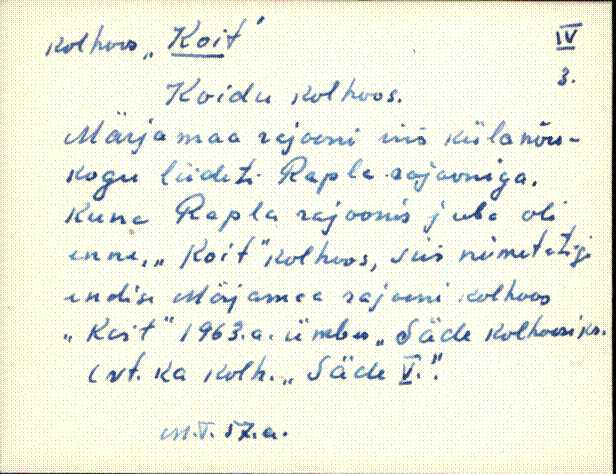 kolhoos „Koit"
IV
3.
Koidu kolhoos.
Märjamaa rajooni viis külanõu-
kogu liideti Rapla rajooniga.
Kuna Rapla rajoonis juba oli
enne „Koit" kolhoos, siis nimetatigi
endise Märjamaa rajooni kolhoos
„Koit" 1963.a. ümber „Säde kolhoosiks.
(vt. ka kolh. „Säde V."
M.T. 57.a.